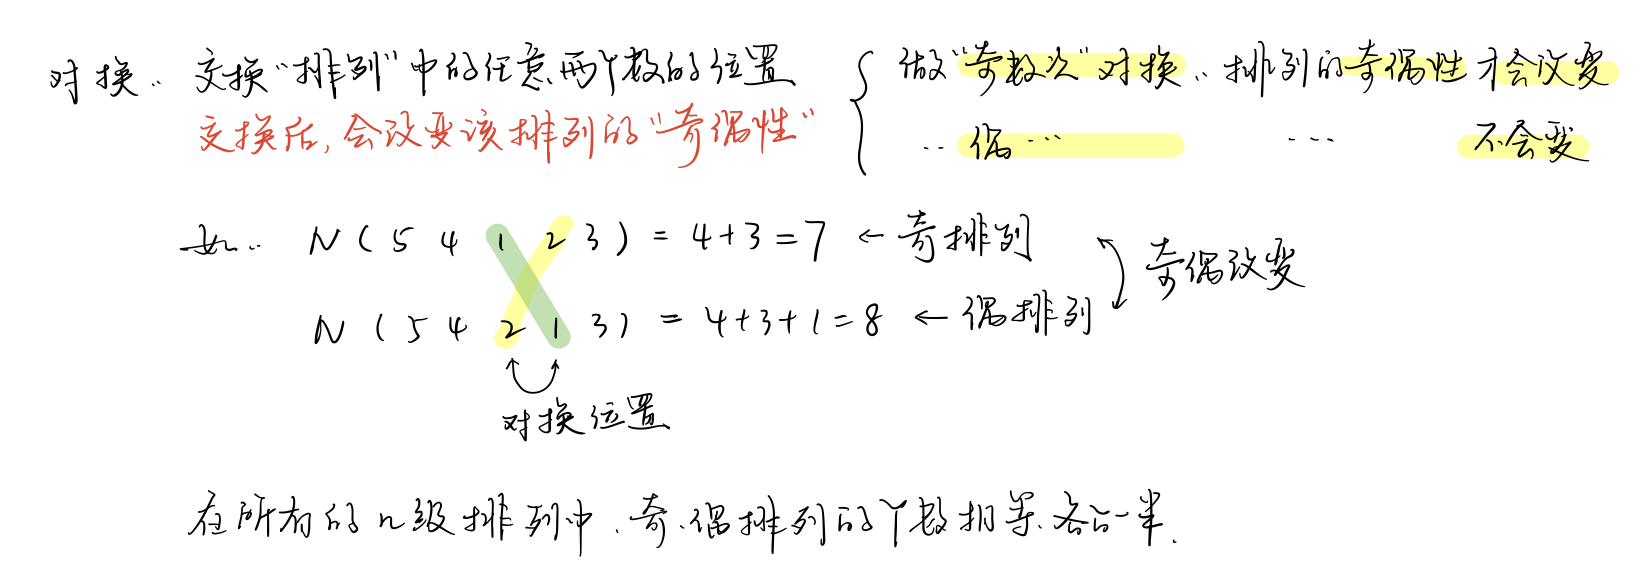 对换.. 交换“排列”中的任意两个数的位置
交换后,会改变该排列的“奇偶性”
做“奇数次”对换..排列的奇偶性才会改变
..偶... ... 不会变
如.. N(5 4 1 2 3) = 4+3=7 ← 奇排列
N(5 4 2 1 3) = 4+3+1=8 ← 偶排列
奇偶改变
对换位置
在所有的n级排列中.奇.偶排列的个数相等.各占一半.